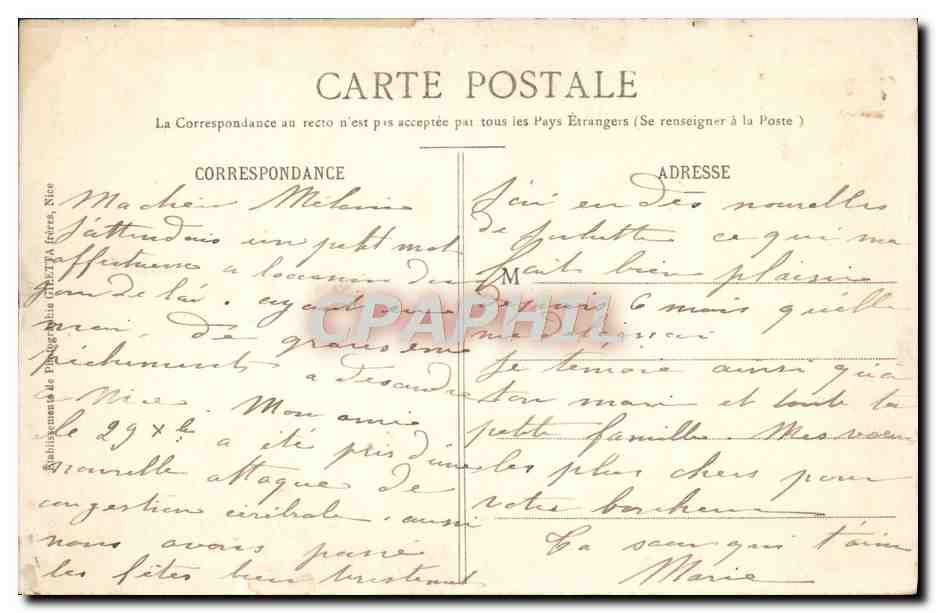 CARTE POSTALE
La Correspondance au recto n'est pas acceptée par tous les Pays Étrangers (Se renseigner à la Poste)
CORRESPONDANCE
Ma chère Mélanie
J'attendais un petit mot
affectueux a loccasion du
jour de l'
moi, de grans em
pèchements a désendre
a Nice. Mon amie
le 29 Xbre a été pris d'une
nouvelle attaque de
congestion cérébrale, aussi
nous avons passé
les fêtes bien tristement
ADRESSE
M
J'ai eu des nouvelles
de Juliette ce qui ma
fait bien plaisir
depuis 6 mois qu'elle
ne
Je t'envoie ainsi qu'à
ton mari et toute ta
petite famille. Mes vœux
les plus chers pour
votre bonheur
Ta sœur qui t'aime
Marie
Établissements de Photographie GILETTA frères, Nice
CPAPHIL